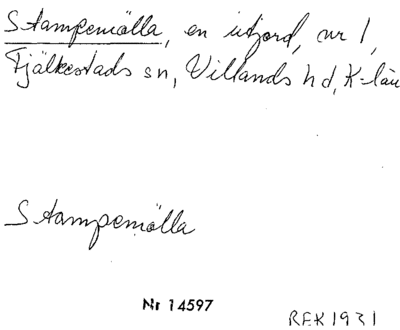 Stampemölla, en utjord, nr 1,
Fjälkestads sn, Villands hd, K-län
Stampemölla
Nr 14597
REK 1931